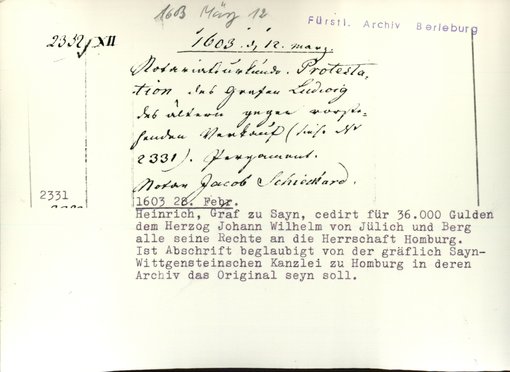 1603 März 12
Fürstl. Archiv Berleburg
2332/XII
1603. d, 12. März.
Notariatsurkunde. Protesta,
tion des Grafen Ludwig
des ältern gegen vorste-
henden Verkauf (siehe Nr
2331). Pergament.
Notar Jacob Schickhard.
2331
1603 28. Febr.
Heinrich, Graf zu Sayn, cedirt für 36.000 Gulden
dem Herzog Johann Wilhelm von Jülich und Berg
alle seine Rechte an die Herrschaft Homburg.
Ist Abschrift beglaubigt von der gräflich Sayn-
Wittgensteinschen Kanzlei zu Homburg in deren
Archiv das Original seyn soll.